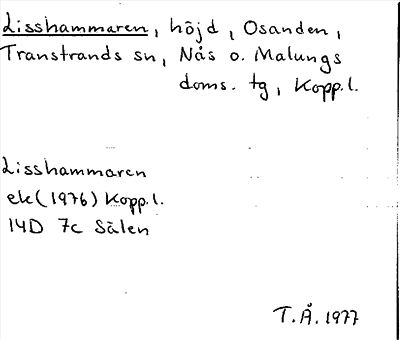 Lisshammaren, höjd, Osanden,
Transtrands sn, Nås o. Malungs
doms. tg, Kopp.l.
Lisshammaren
ek (1976) Kopp.l.
14D 7c Sälen
T.Å. 1977